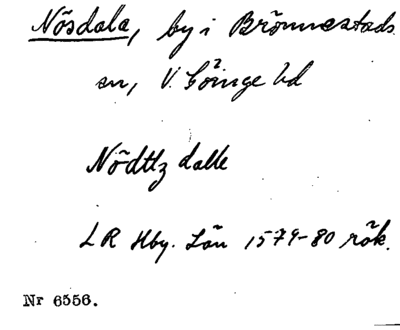 Nösdala, by i Brönnestads
sn, V. Göinge hd
Nödttz dalle
LR Hby. Län 1579-80 räk.
Nr 6556.